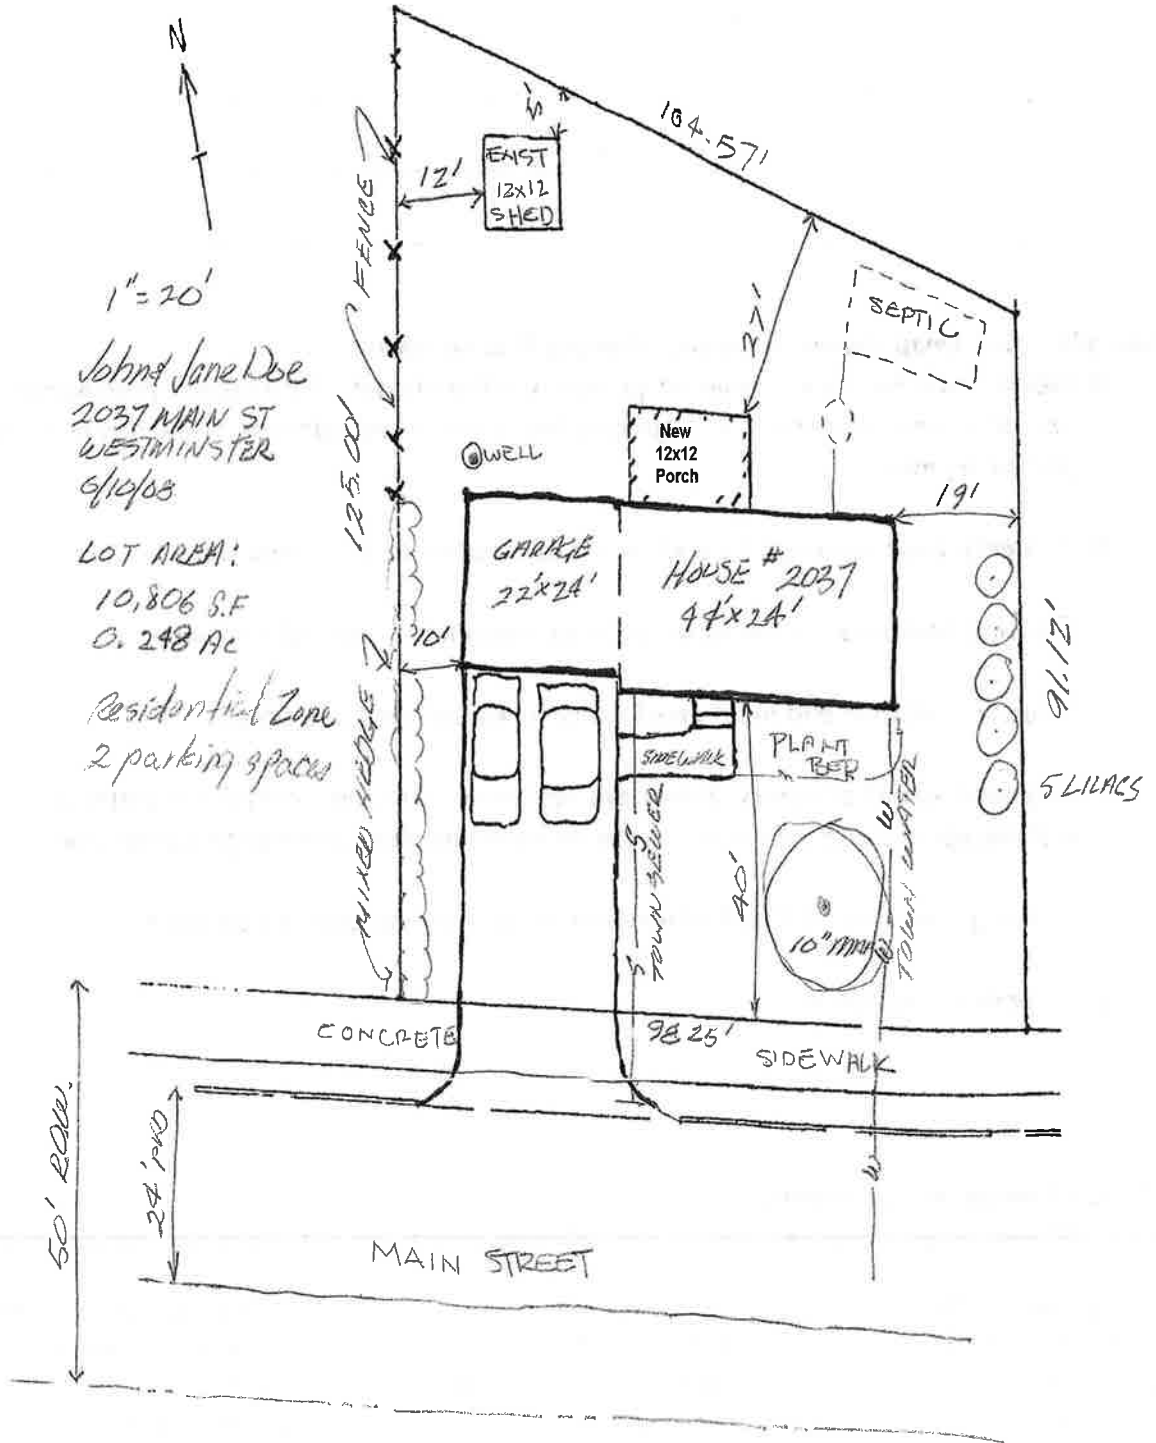 N
1"=20'
John & Jane Doe
2037 MAIN ST
WESTMINSTER
6/10/08
LOT AREA:
10,806 S.F
0.248 AC
Residential Zone
2 parking spaces
FENCE
125.00'
MIXED HEDGE
12'
5'
EXIST
12x12
SHED
104.57'
27'
SEPTIC
WELL
New
12x12
Porch
19'
GARAGE
22'x24'
HOUSE # 2037
44'x24'
10'
91.12'
5 LILACS
SIDEWALK
PLANT
BED
S
TOWN SEWER
S
40'
10"
W
TOWN WATER
W
CONCRETE
98.25'
SIDEWALK
W
50' R.O.W.
24'
MAIN STREET